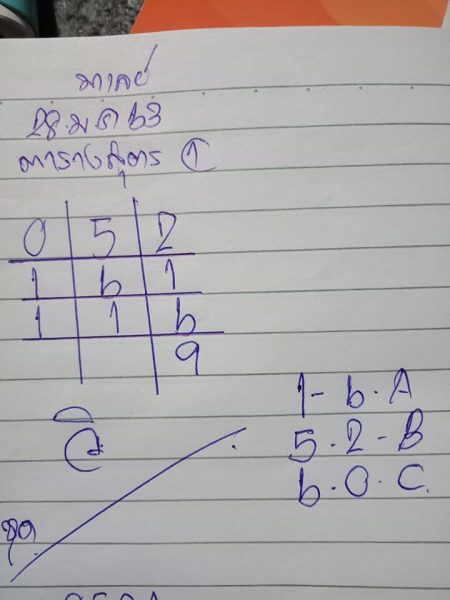 มาเลย์
28.มค 63
ตารางสูตร ①
0 5 2
1 6 1
1 1 6
9
1 - 6 . A
5 . 2 - B
6 . 0 . C.
ชุด